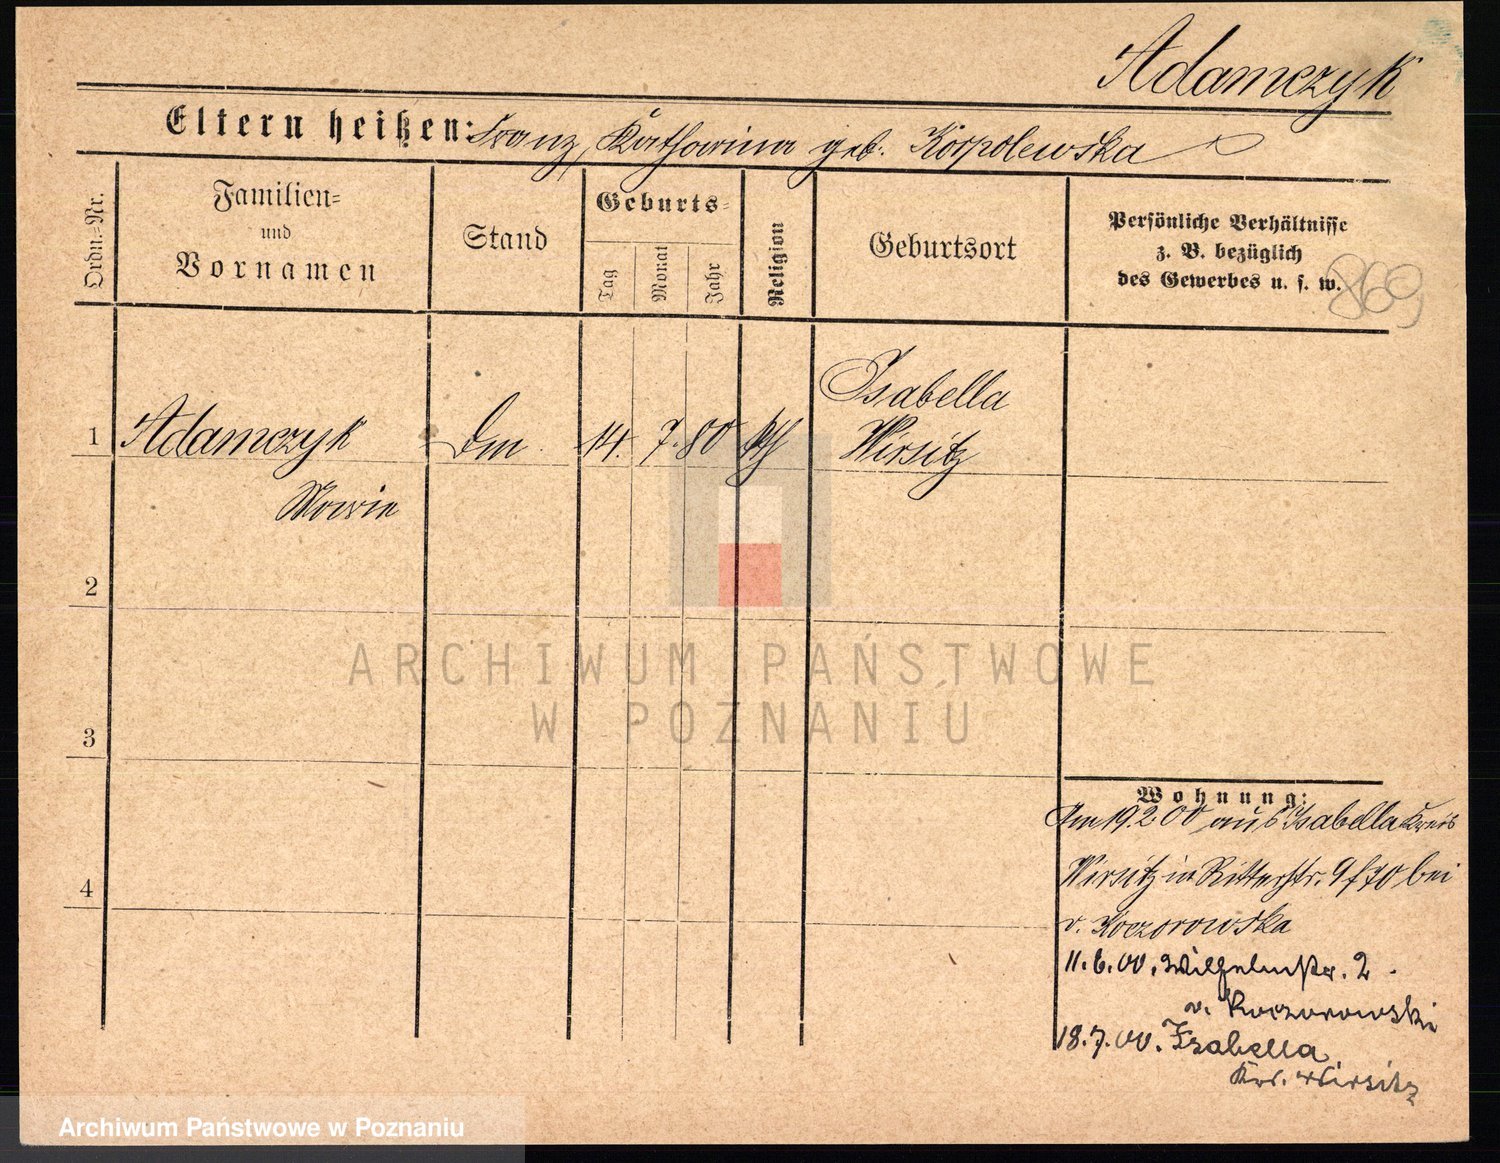 Adamczyk
Eltern heißen: Franz, Katharina geb. Korpolewska
Ordn.=Nr.
Familien=
und
Vornamen
Stand
Geburts=
Tag
Monat
Jahr
Religion
Geburtsort
Persönliche Verhältnisse
z. B. bezüglich
des Gewerbes u. s. w.
869
1 Adamczyk
Marie
14. 7. 80 kth
Isabella
Wirsitz
2
3
4
ARCHIWUM PAŃSTWOWE
W POZNANIU
Wohnung:
Am 19.2 00 aus Isabella Kreis
Wirsitz in Ritterstr. 9 bei
v. Koczorowska
11.6.00. Wilhelmstr. 2.
v. Koczorowski
18.7.00. Isabella
Krs. Wirsitz
Archiwum Państwowe w Poznaniu